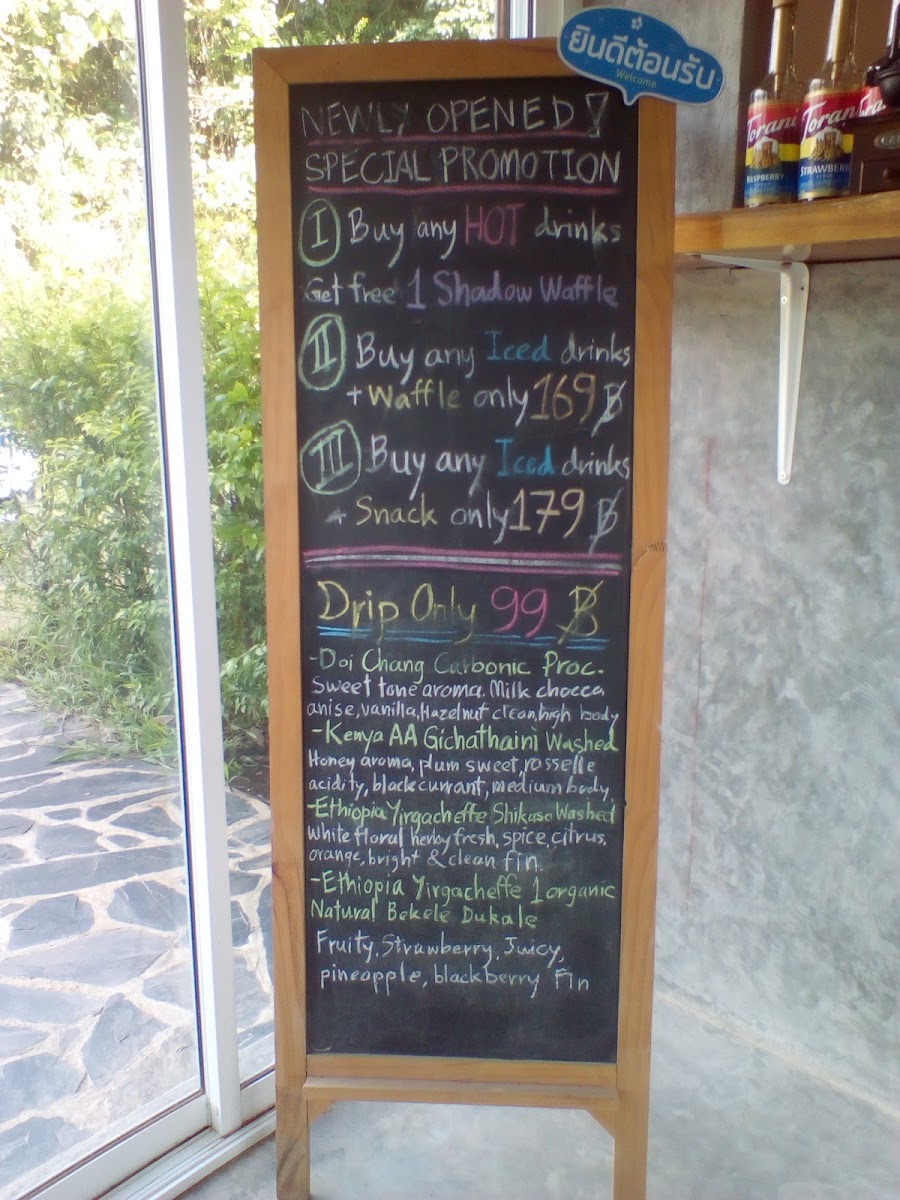 ยินดีต้อนรับ
Welcome
NEWLY OPENED!
SPECIAL PROMOTION
I Buy any HOT drinks
Get free 1 Shadow Waffle
II Buy any Iced drinks
+ Waffle only 169 ฿
III Buy any Iced drinks
+ Snack only 179 ฿
Drip Only 99 ฿
-Doi Chang Carbonic Proc.
Sweet tone aroma, Milk chocco,
anise, vanilla, Hazelnut clean, high body
-Kenya AA Gichathaini Washed
Honey aroma, plum sweet, rosselle
acidity, blackcurrant, medium body,
-Ethiopia Yirgacheffe Shikaso Washed
White floral herby fresh, spice, citrus,
orange, bright & clean fin.
-Ethiopia Yirgacheffe 1 organic
Natural Bekele Dukale
Fruity, Strawberry, Juicy,
pineapple, blackberry Fin
Torani
RASPBERRY
Torani
STRAWBERR